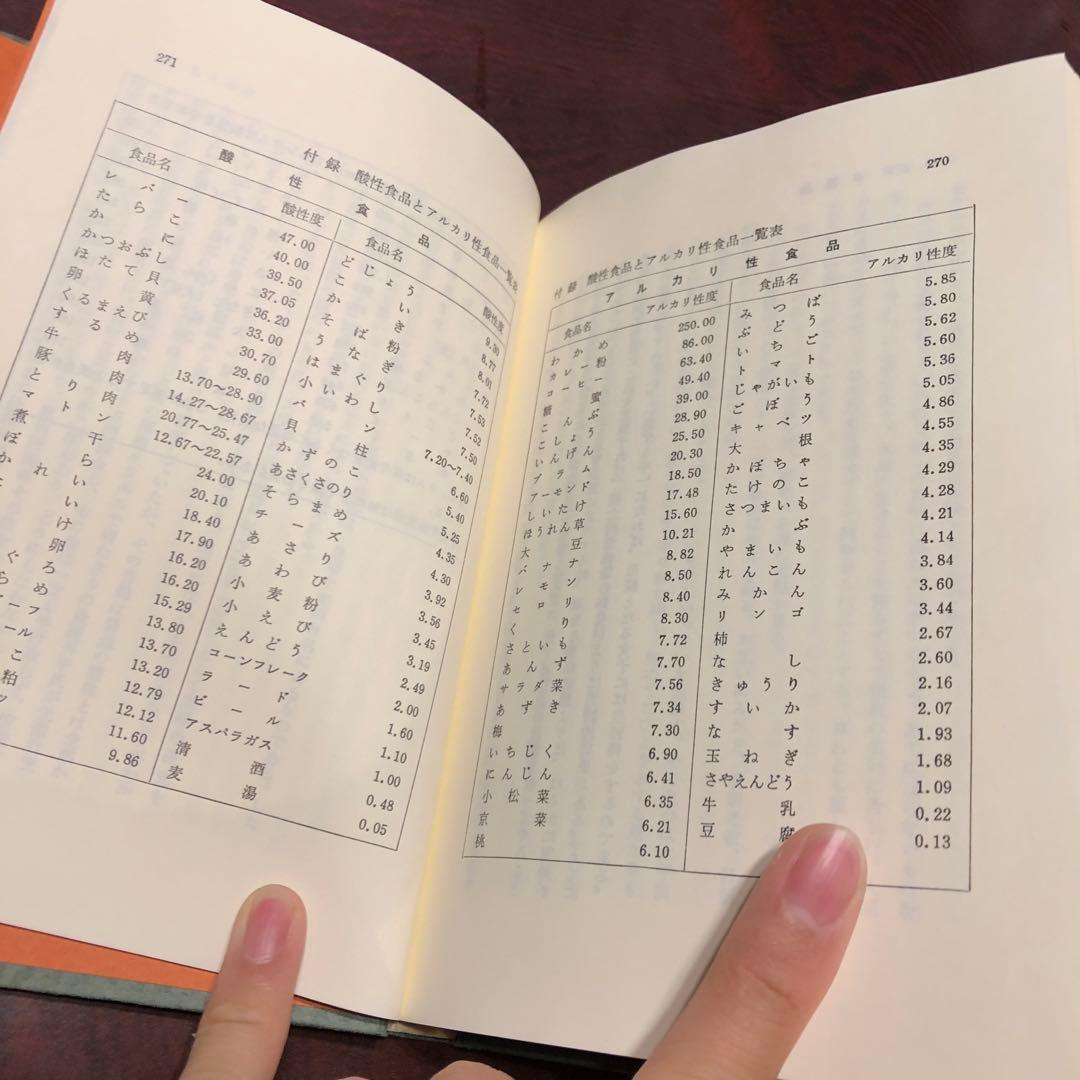 270
付録 酸性食品とアルカリ性食品一覧表
アルカリ性食品
食品名 アルカリ性度 食品名 アルカリ性度
わかめ 250.00 みつば 5.85
カレー粉 86.00 ぶどう 5.80
コーヒー 63.40 いちご 5.62
糖蜜 49.40 トマト 5.60
こんぶ 39.00 じゃがいも 5.36
こしょう 28.90 ごぼう 5.05
いんげん 25.50 キャベツ 4.86
プラム 20.30 大根 4.55
アーモンド 18.50 かぼちゃ 4.35
しいたけ 17.48 たけのこ 4.29
ほうれん草 15.60 さつまいも 4.28
大豆 10.21 かぶ 4.21
バナナ 8.82 やまいも 4.14
レモン 8.50 れんこん 3.84
セロリ 8.40 みかん 3.60
くり 8.30 リンゴ 3.44
さといも 7.72 柿 2.67
あんず 7.70 なし 2.60
サラダ菜 7.56 きゅうり 2.16
あずき 7.34 すいか 2.07
梅 7.30 なす 1.93
いちじく 6.90 玉ねぎ 1.68
にんじん 6.41 さやえんどう 1.09
小松菜 6.35 牛乳 0.22
京菜 6.21 豆腐 0.13
桃 6.10
271
付録 酸性食品とアルカリ性食品一覧表
酸性食品
食品名 酸性度 食品名 酸性度
レバー 47.00 どじょう 9.30
たらこ 40.00 こい 8.77
かに 39.50 かき 8.01
かつおぶし 37.05 そば粉 7.72
ほたて貝 36.20 うなぎ 7.53
卵黄 33.00 はまぐり 7.52
くるまえび 30.70 小いわし 7.50
するめ 29.60 パン 7.20～7.40
牛肉 13.70～28.90 貝柱 6.60
豚肉 14.27～28.67 かずのこ 5.40
とり肉 20.77～25.47 あさくさのり 5.25
マトン 12.67～22.57 そらまめ 4.35
煮干 24.00 チーズ 4.30
ぼら 20.10 あさり 3.92
かれい 18.40 あわび 3.56
い 17.90 小麦粉 3.45
け 16.20 小えび 3.19
卵 16.20 えんどう 2.49
ぐろ 15.29 コーンフレーク 2.00
らめ 13.80 ラード 1.60
ーフ 13.70 ビール 1.10
ール 13.20 アスパラガス 1.00
こ 12.79 清酒 0.48
粕 12.12 麦湯 0.05
ッ 11.60
9.86